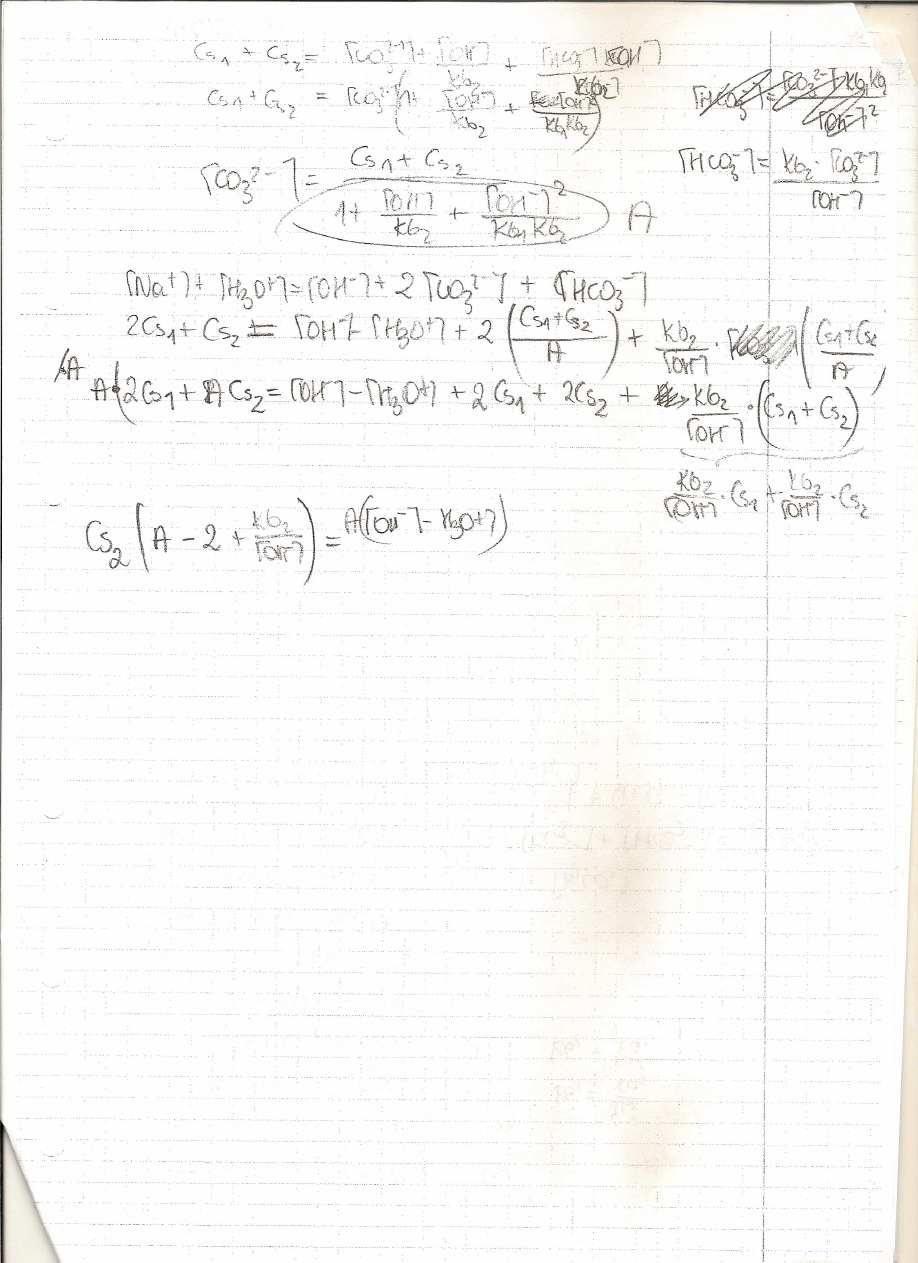 Cs₁ + Cs₂ = [CO₃²⁻] + [OH⁻]/Kb₂ + [HCO₃⁻][OH⁻]/Kb₁
Cs₁ + Cs₂ = [CO₃²⁻] (1 + [OH⁻]/Kb₂ + [OH⁻]²/Kb₁Kb₂)
[HCO₃⁻] = [CO₃²⁻] Kb₁Kb₂/[OH⁻]²
[CO₃²⁻] = Cs₁ + Cs₂ / 1 + [OH⁻]/Kb₂ + [OH⁻]²/Kb₁Kb₂ A
[HCO₃⁻] = Kb₂ · [CO₃²⁻]/[OH⁻]
[Na⁺] + [H₃O⁺] = [OH⁻] + 2 [CO₃²⁻] + [HCO₃⁻]
2Cs₁ + Cs₂ = [OH⁻] - [H₃O⁺] + 2 (Cs₁+Cs₂/A) + Kb₂/[OH⁻] · (Cs₁+Cs₂/A)
/·A
A(2Cs₁ + A Cs₂ = [OH⁻] - [H₃O⁺] + 2Cs₁ + 2Cs₂ + Kb₂/[OH⁻] · (Cs₁ + Cs₂)
Kb₂/[OH⁻] · Cs₁ + Kb₂/[OH⁻] · Cs₂
Cs₂ (A - 2 + Kb₂/[OH⁻]) = A([OH⁻] - H₃O⁺])